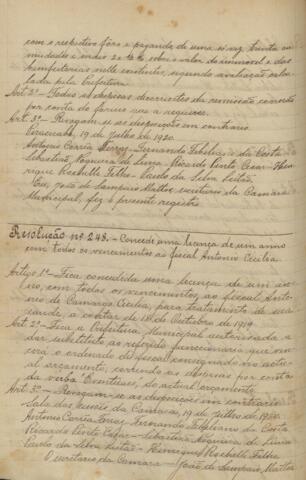 com o respectivo fôro e pagando de uma só vez trinta an-
nuidades e mais 2 1/2 % sobre o valor do immovel e das
bemfeitorias nelle existentes, segundo avaliação effec-
tuada pela Prefeitura.
Art. 2º - Todas as despesas decorrentes da remissão correrão
por conta do foreiro que a requerer.
Art. 3º - Revogam-se as disposições em contrario.
Piracicaba, 19 de julho de 1920.
Antonio Corrêa Ferraz - Fernando Febeliano da Costa
Sebastião Nogueira de Lima, Ricardo Pinto Cesar - Hen-
rique Rochelle Filho - Paulo da Silva Leitão.
Eu, João de Sampaio Mattos, secretario da Camara
Municipal, fiz o presente registro.
Resolução nº 248. - Concede uma licença de um anno
com todos os vencimentos ao fiscal Antonio Cecilia
Artigo 1º - Fica concedida uma licença de um an-
no, com todos os vencimentos ao fiscal Anto-
nio de Camargo Cecilia, para tratamento de sua
saude, a contar de 18 de Outubro de 1919.
Art. 2º - Fica a Prefeitura Municipal autorisada a
dar substituto ao referido funccionario que ven-
cerá o ordenado de fiscal consignado no actu-
al orçamento, correndo as despesas por conta
da verba Eventuaes, do actual orçamento.
Art. 3º - Revogam-se as disposições em contrario.
Sala das sessões da Camara, 19 de julho de 1920.
Antonio Corrêa Ferraz, Fernando Febeliano da Costa
Ricardo Pinto Cesar - Sebastião Nogueira de Lima
Paulo da Silva Leitão - Henrique Rochelle Filho
O secretario da Camara - João de Sampaio Mattos